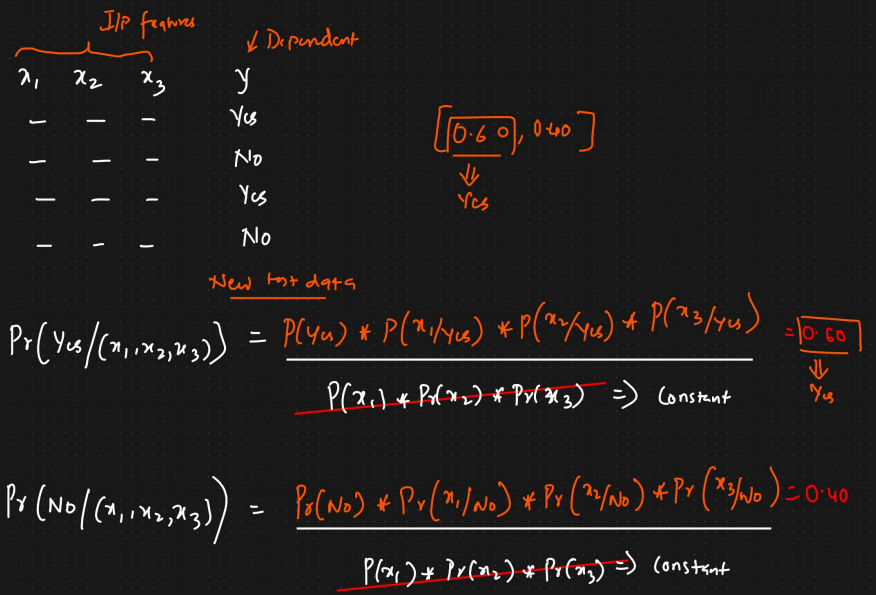 I/P features
↓ Dependent
x₁ x₂ x₃ y
— — — Yes
— — — No
— — — Yes
— — — No
[0.60, 0.40]
⇓
Yes
New test data
Pr(Yes/(x₁, x₂, x₃)) = P(Yes) * P(x₁/Yes) * P(x₂/Yes) * P(x₃/Yes) = 0.60
P(x₁) * Pr(x₂) * Pr(x₃) ⇒ Constant
⇓
Yes
Pr(No/(x₁, x₂, x₃)) = Pr(No) * Pr(x₁/No) * Pr(x₂/No) * Pr(x₃/No) = 0.40
P(x₁) * Pr(x₂) * Pr(x₃) ⇒ Constant